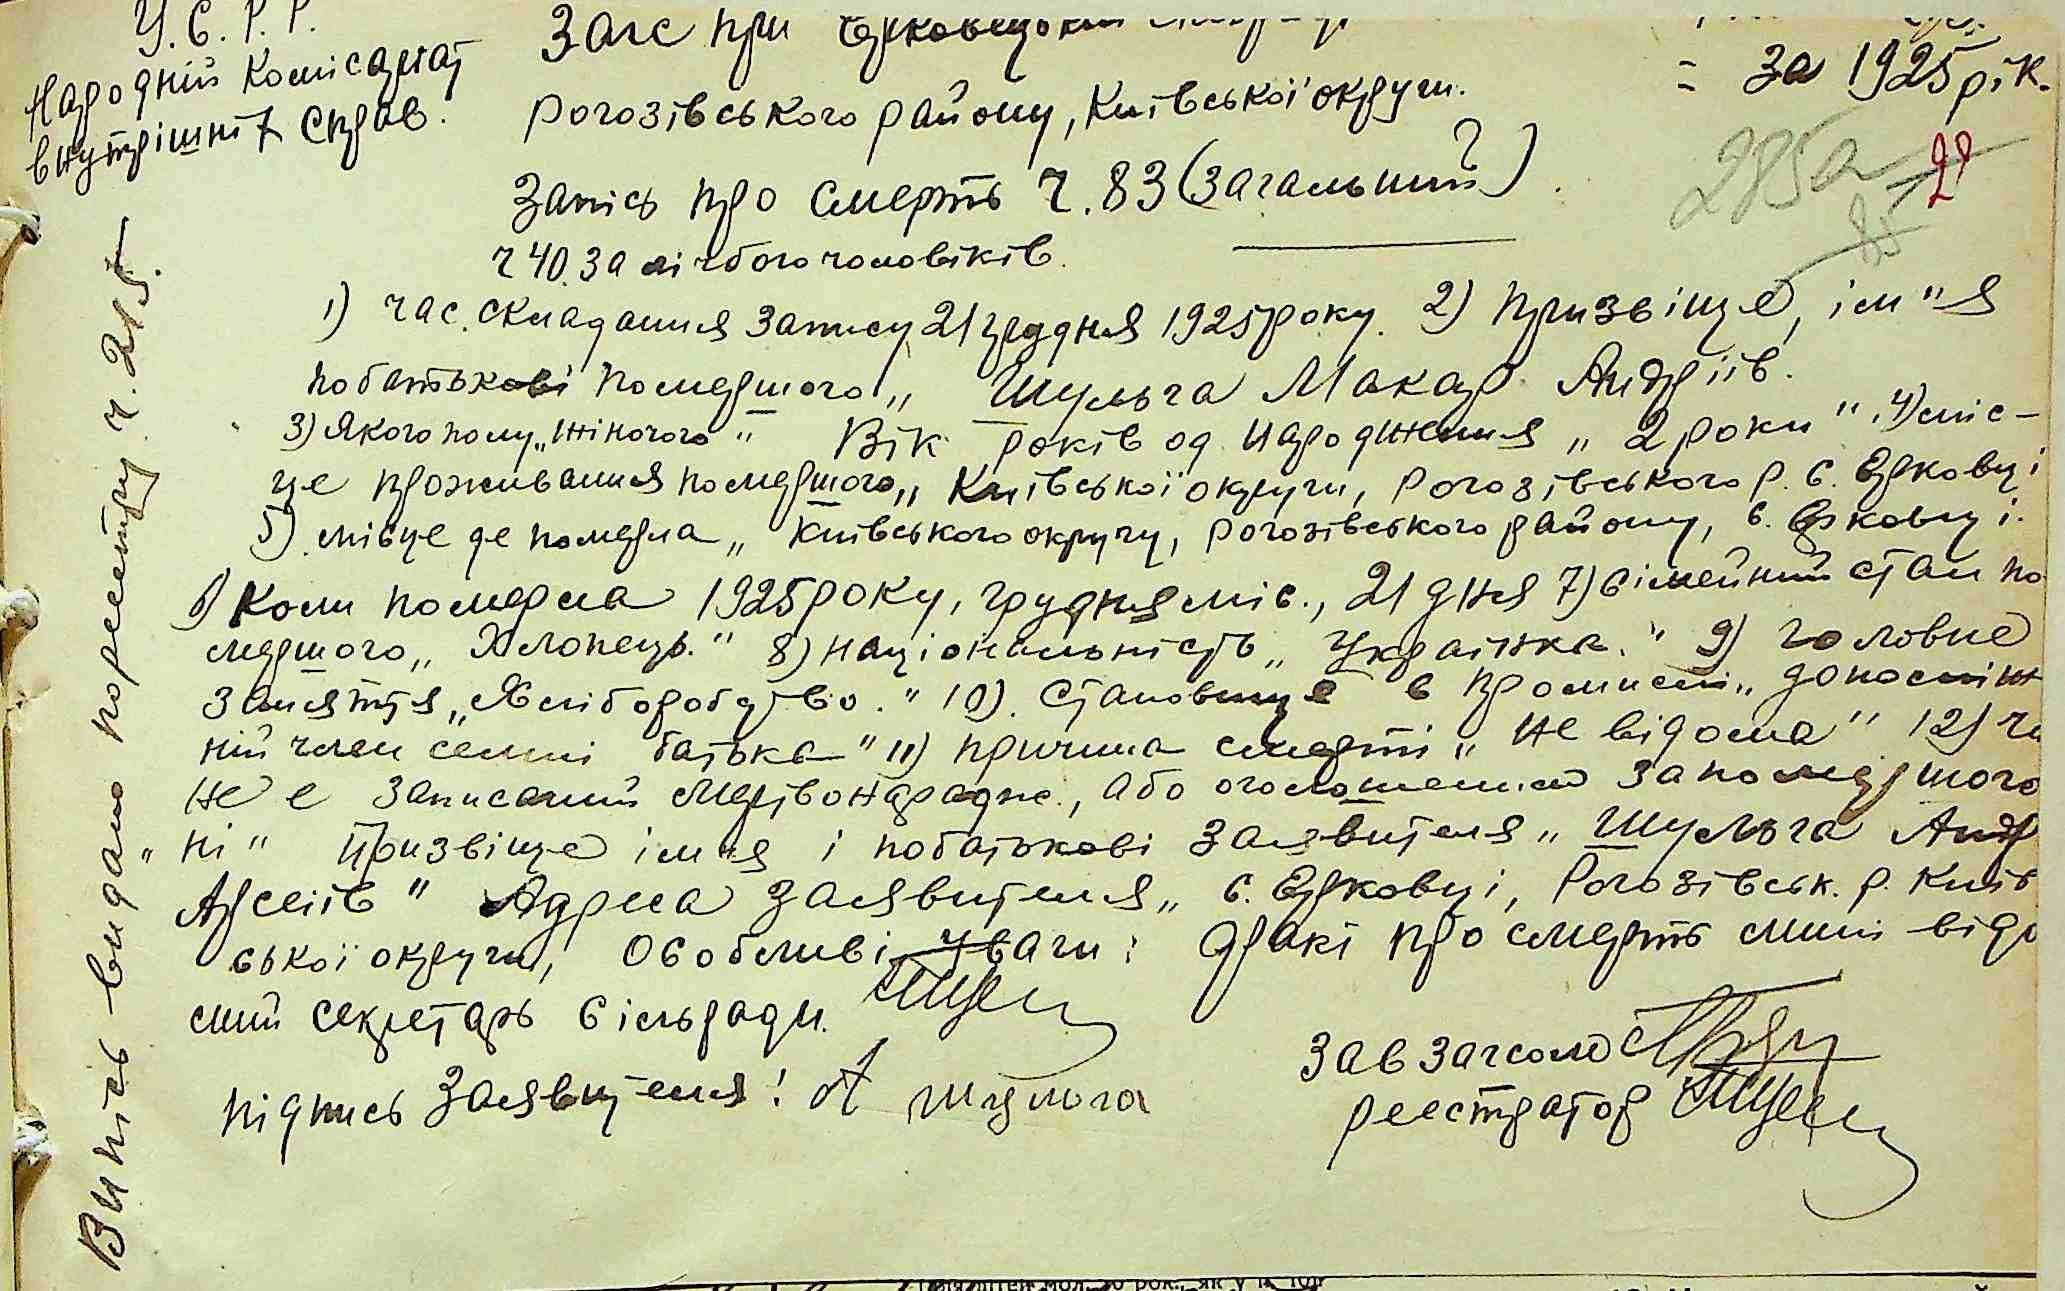 У.С.Р.Р.
Народній Комісаріат
внутрішніх справ.
Загс при Єрковецькій
= за 1925 рік.
Рогозівського району, Київської округи.
285а
28
85
Запісь про смерть Ч. 83 (загальний)
ч 40. За лічбою чоловіків.
1) час. складання запису 21 грудня 1925 року. 2) призвіще, ім"я
побатькові помершого „ Шульга Макар Андріїв.
3) Якого полу „жіночого" Вік років од народження „ 2 роки". 4) міс-
це проживання помершого „ Київської округи, Рогозівського р. с. Єрковці
5). місце де померла „ Київського округу, Рогозівського району, с. Єрковці.
6) Коли померла 1925 року, грудня міс., 21 дня 7) сімейний стан по
мершого „ Хлопець." 8) національність „ Українка." 9) головне
заняття „Хліборобство." 10). Становище в промислі „ допоміж
ній член семьі батька" 11) причина смерті „ не відома" 12) чи
не є записаний мертвонародж., або оголошений за помершого
„ ні " Призвіще ім"я і побатькові заявителя „ Шульга Андр
Арсеїв" Адреса заявителя „ с. Єрковці, Рогозівськ. р. Київ
ської округи, Особливі уваги: факт про смерть мині відо
мий секретарь сільради.
підпись заявителя: А Шульга
зав загсом
реєстратор
Випісь видано по реєстру ч. 215.